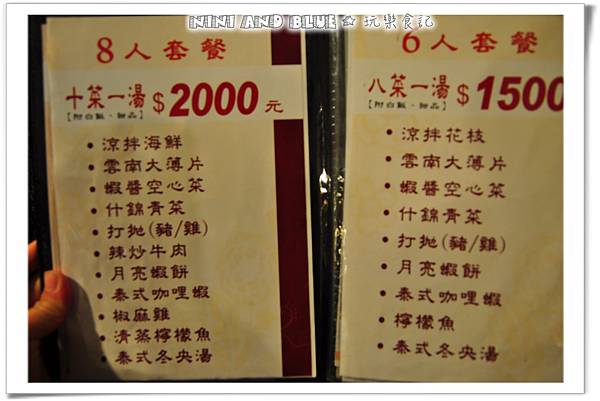 NINI AND BLUE☆玩樂食記
8人套餐
十菜一湯 $2000元
【附白飯、甜品】
• 涼拌海鮮
• 雲南大薄片
• 蝦醬空心菜
• 什錦青菜
• 打拋(豬/雞)
• 辣炒牛肉
• 月亮蝦餅
• 泰式咖哩蝦
• 椒麻雞
• 清蒸檸檬魚
• 泰式冬央湯
6人套餐
八菜一湯 $1500
【附白飯、甜品】
• 涼拌花枝
• 雲南大薄片
• 蝦醬空心菜
• 什錦青菜
• 打拋(豬/雞)
• 月亮蝦餅
• 泰式咖哩蝦
• 檸檬魚
• 泰式冬央湯